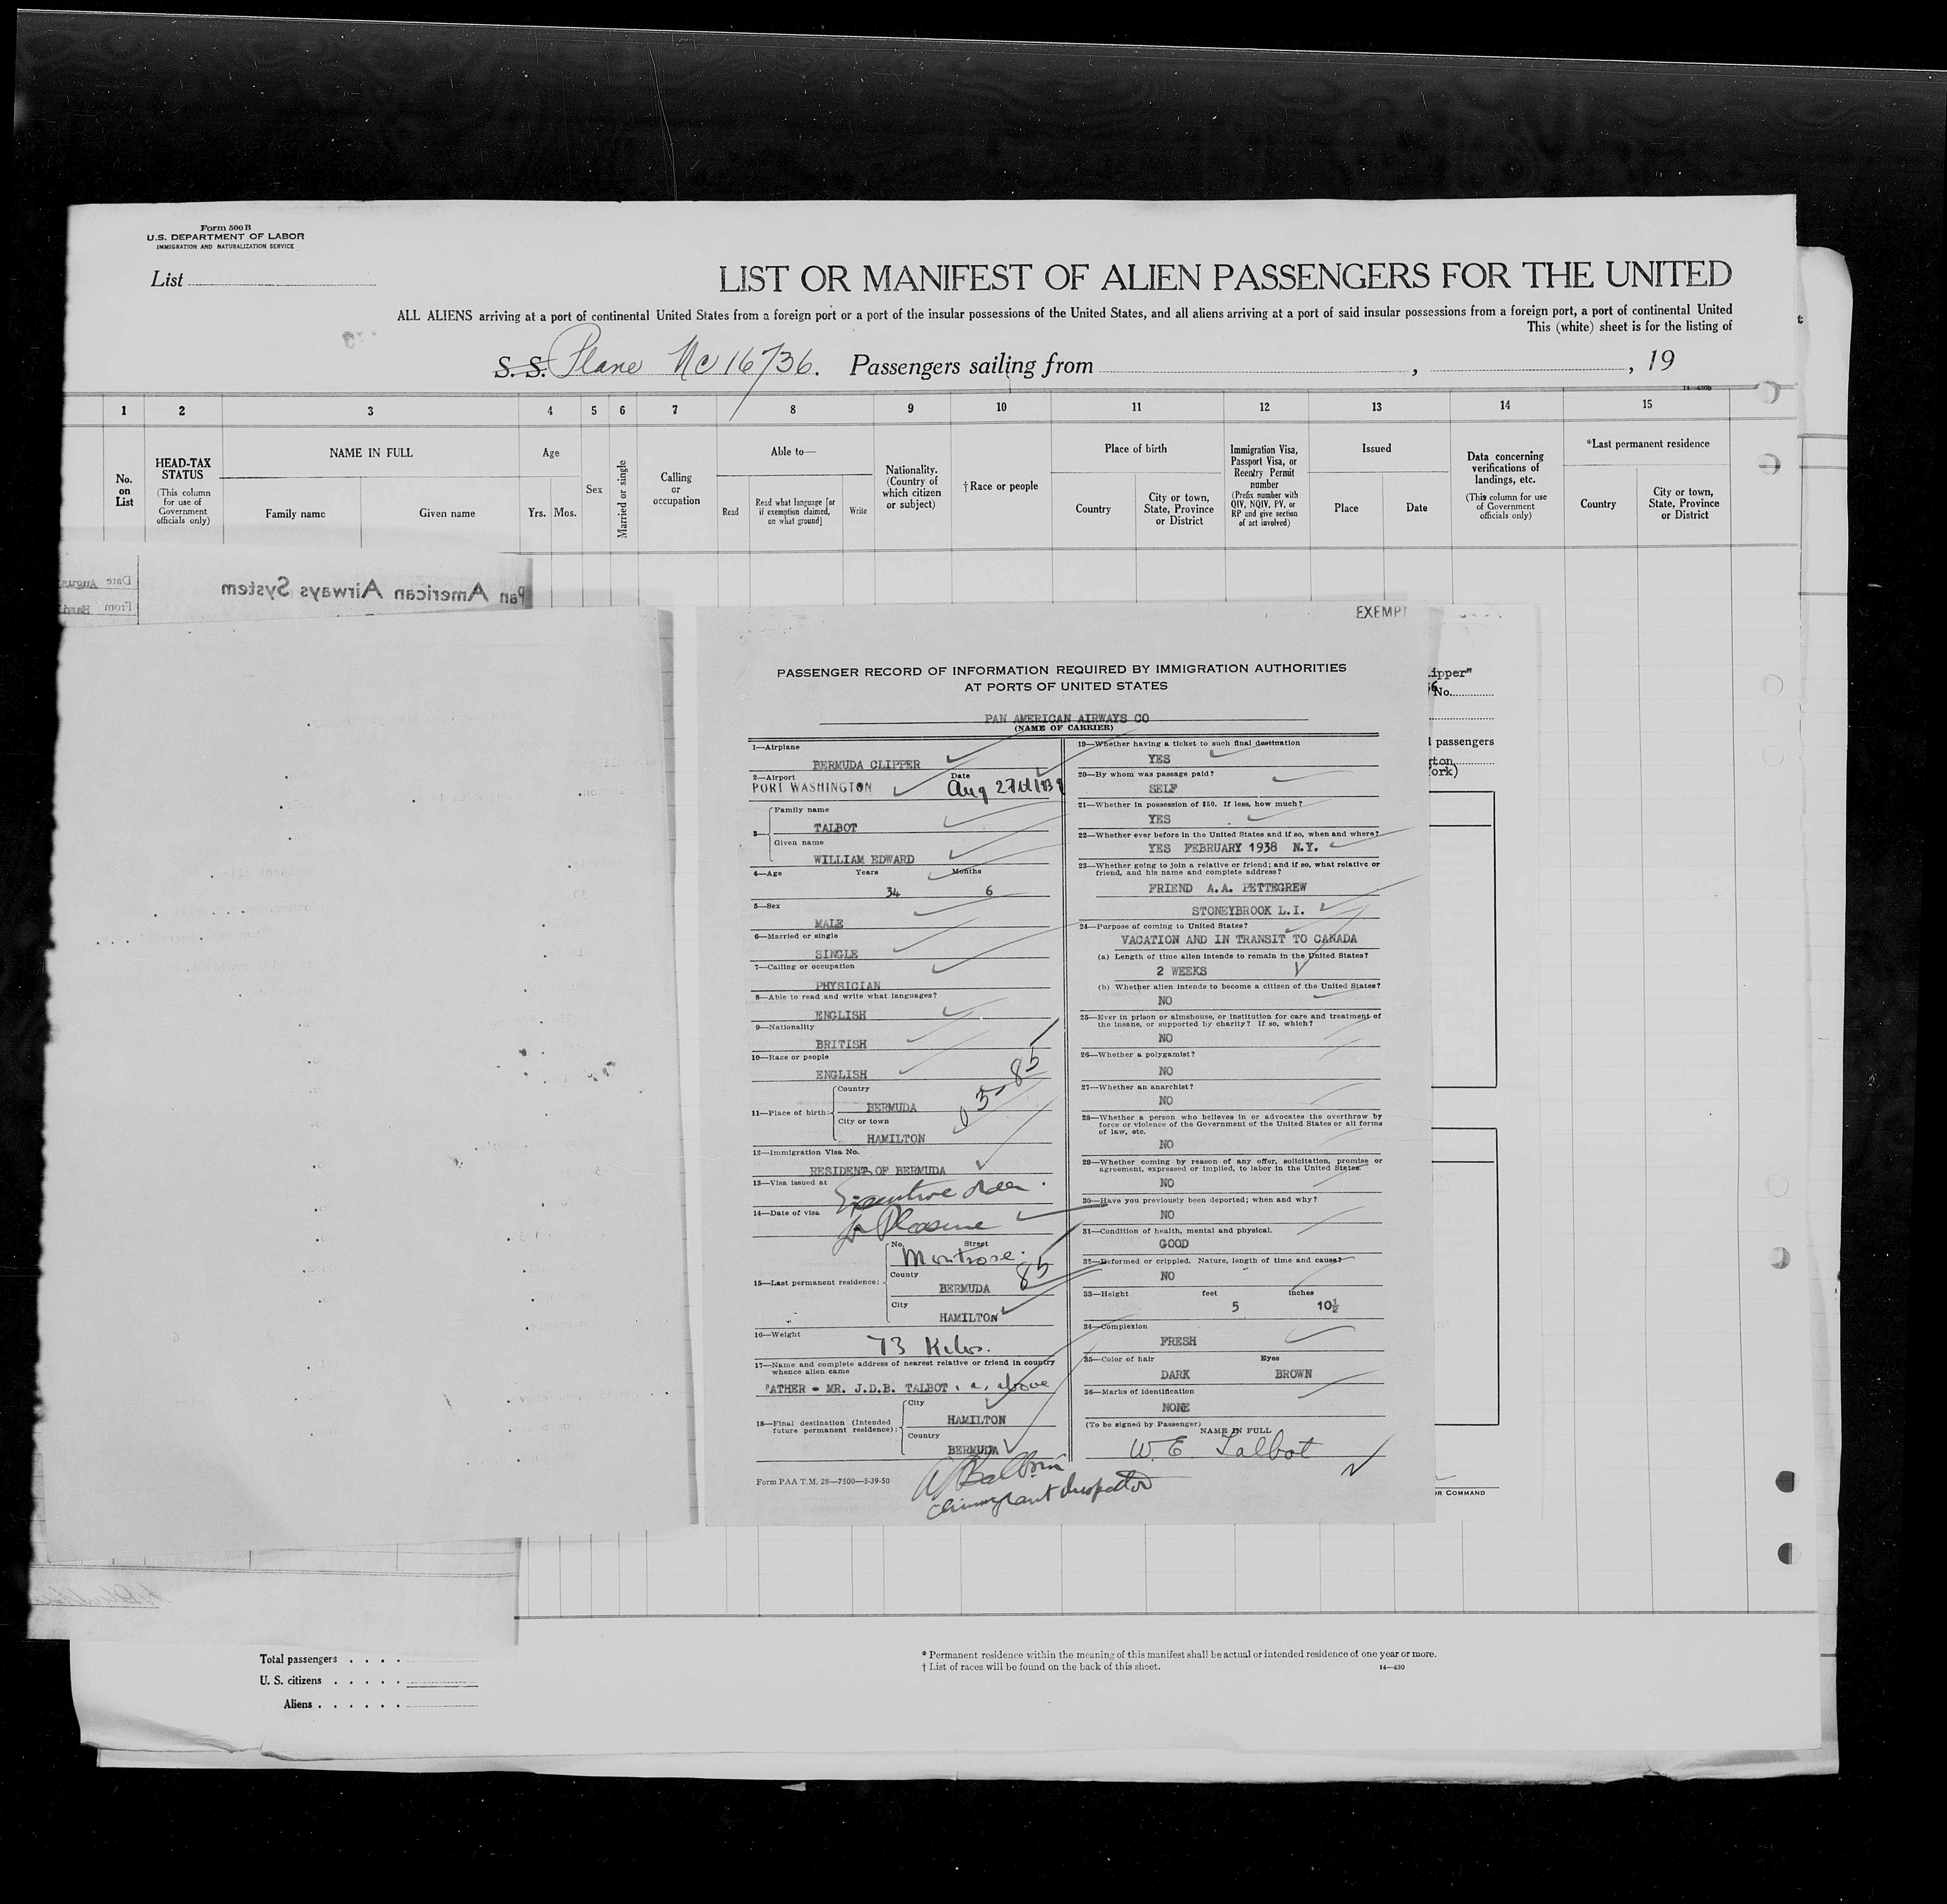 Form 500 B
U.S. DEPARTMENT OF LABOR
IMMIGRATION AND NATURALIZATION SERVICE
List
LIST OR MANIFEST OF ALIEN PASSENGERS FOR THE UNITED
ALL ALIENS arriving at a port of continental United States from a foreign port or a port of the insular possessions of the United States, and all aliens arriving at a port of said insular possessions from a foreign port, a port of continental United
This (white) sheet is for the listing of
S. S. Plane Nc 16736. Passengers sailing from , , 19
1 2 3 4 5 6 7 8 9 10 11 12 13 14 15
No. on List
HEAD-TAX STATUS
(This column for use of Government officials only)
NAME IN FULL
Family name
Given name
Age
Yrs. Mos.
Sex
Married or single
Calling or occupation
Able to—
Read
Read what language [or if exemption claimed, on what ground]
Write
Nationality. (Country of which citizen or subject)
†Race or people
Place of birth
Country
City or town, State, Province or District
Immigration Visa, Passport Visa, or Reentry Permit number
(Prefix number with QIV, NQIV, PV, or RP and give section of act involved)
Issued
Place
Date
Data concerning verifications of landings, etc.
(This column for use of Government officials only)
*Last permanent residence
Country
City or town, State, Province or District
Pan American Airways System
Date
From
EXEMPT
PASSENGER RECORD OF INFORMATION REQUIRED BY IMMIGRATION AUTHORITIES
AT PORTS OF UNITED STATES
PAN AMERICAN AIRWAYS CO
(NAME OF CARRIER)
1—Airplane
BERMUDA CLIPPER
2—Airport Date
PORT WASHINGTON Aug 27
3— Family name
TALBOT
Given name
WILLIAM EDWARD
4—Age Years Months
34 6
5—Sex
MALE
6—Married or single
SINGLE
7—Calling or occupation
PHYSICIAN
8—Able to read and write what languages?
ENGLISH
9—Nationality
BRITISH
10—Race or people
ENGLISH
85
11—Place of birth: Country
BERMUDA
City or town
HAMILTON
12—Immigration Visa No.
RESIDENT OF BERMUDA
13—Visa issued at
Executive Order
14—Date of visa
for Pleasure
15—Last permanent residence: No. Street
Montrose.
County
BERMUDA 85
City
HAMILTON
16—Weight
73 Kilos.
17—Name and complete address of nearest relative or friend in country
whence alien came
FATHER - MR. J.D.B. TALBOT, as above
18—Final destination (Intended future permanent residence): City
HAMILTON
Country
BERMUDA
Form PAA T.M. 28—7500—5-39-50
Immigrant Inspector
19—Whether having a ticket to such final destination
YES
20—By whom was passage paid?
SELF
21—Whether in possession of $50. If less, how much?
YES
22—Whether ever before in the United States and if so, when and where?
YES FEBRUARY 1938 N.Y.
23—Whether going to join a relative or friend; and if so, what relative or
friend, and his name and complete address?
FRIEND A.A. PETTEGREW
STONEYBROOK L.I.
24—Purpose of coming to United States?
VACATION AND IN TRANSIT TO CANADA
(a) Length of time alien intends to remain in the United States?
2 WEEKS
(b) Whether alien intends to become a citizen of the United States?
NO
25—Ever in prison or almshouse, or institution for care and treatment of
the insane, or supported by charity? If so, which?
NO
26—Whether a polygamist?
NO
27—Whether an anarchist?
NO
28—Whether a person who believes in or advocates the overthrow by
force or violence of the Government of the United States or all forms
of law, etc.
NO
29—Whether coming by reason of any offer, solicitation, promise or
agreement, expressed or implied, to labor in the United States
NO
30—Have you previously been deported; when and why?
NO
31—Condition of health, mental and physical.
GOOD
32—Deformed or crippled. Nature, length of time and cause?
NO
33—Height feet inches
5 10½
34—Complexion
FRESH
35—Color of hair Eyes
DARK BROWN
36—Marks of identification
NONE
(To be signed by Passenger)
NAME IN FULL
W. E. Talbot
No.
passengers
OR COMMAND
Total passengers
U. S. citizens
Aliens
* Permanent residence within the meaning of this manifest shall be actual or intended residence of one year or more.
† List of races will be found on the back of this sheet.
14—430